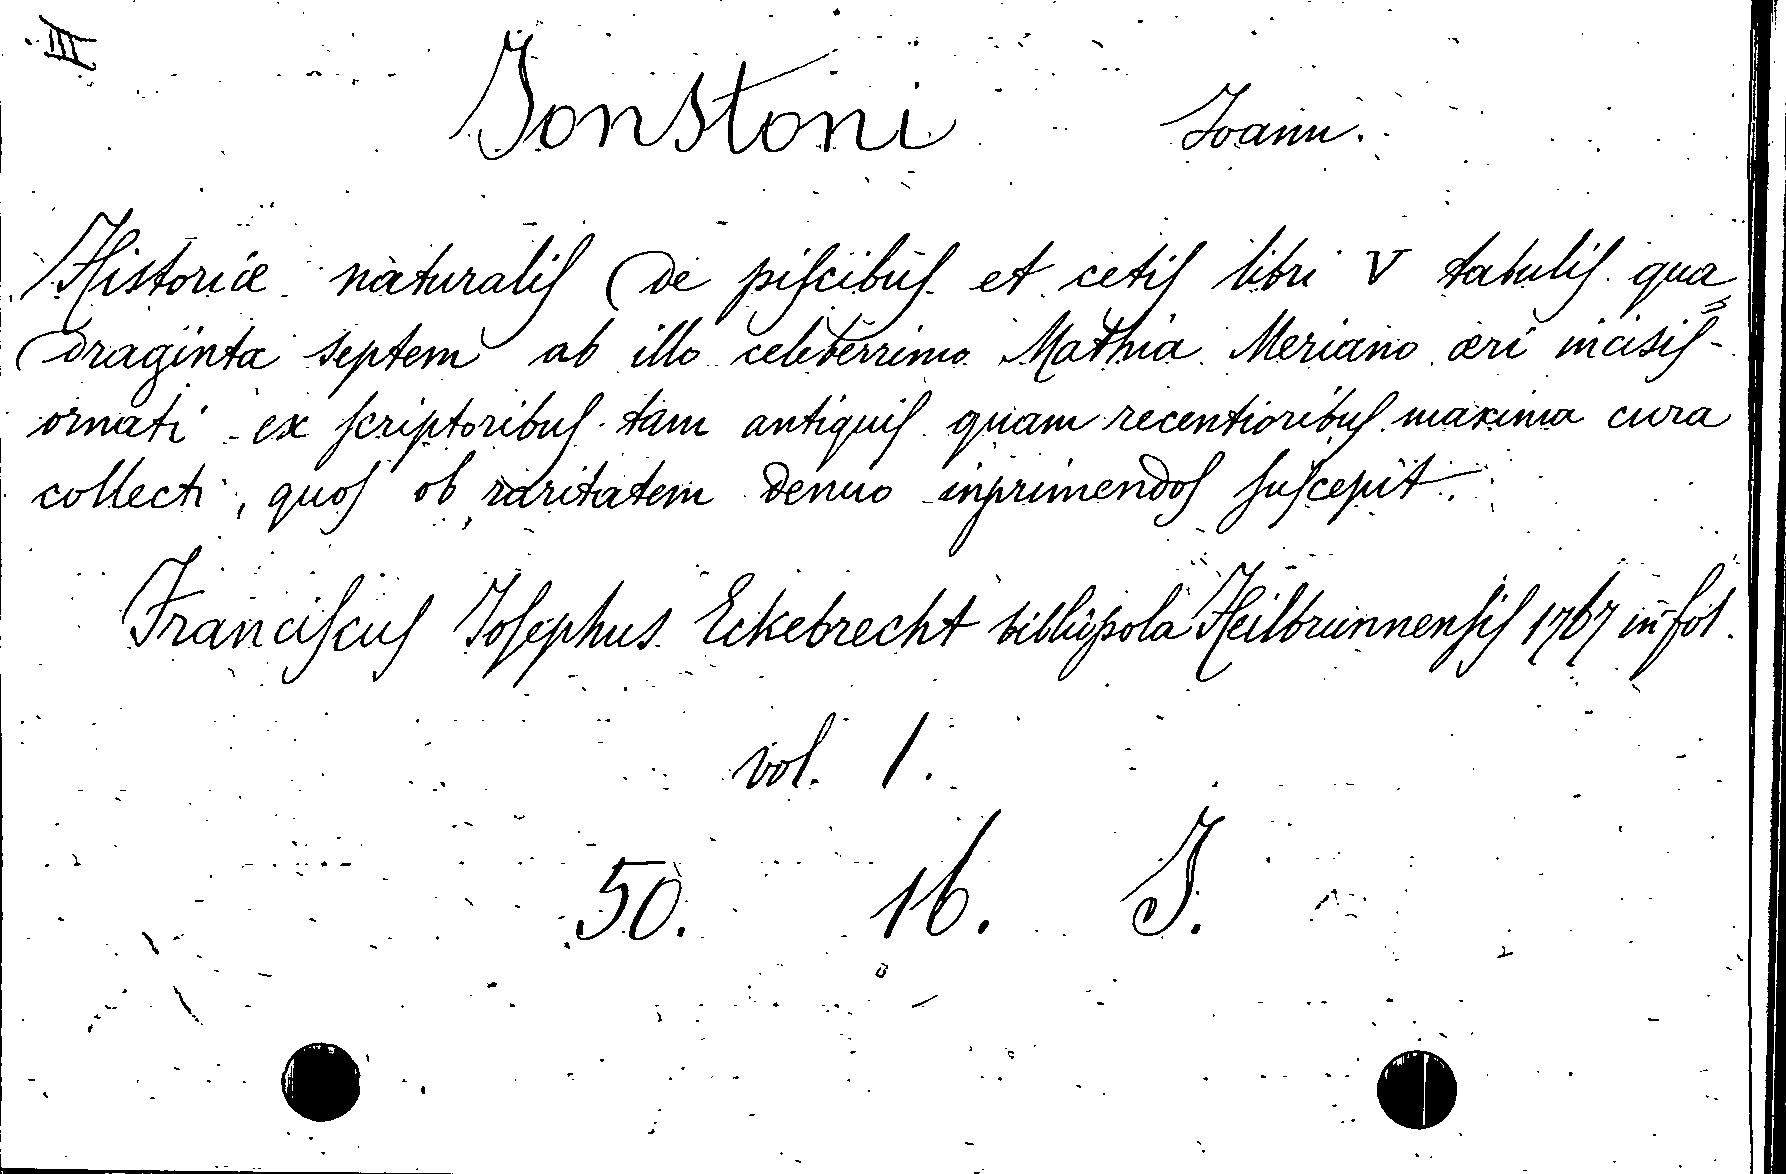 III
Jonstoni Joann.
Historiæ naturalis de piscibus et cetis libri V tabulis qua=
draginta septem ab illo celeberrimo Mathia Meriano æri incisis
ornati ex scriptoribus tam antiquis quam recentioribus maxima cura
collecti, quos ob raritatem denuo inprimendos suscepit.
Franciscus Josephus Eckebrecht bibliopola Heilbrunnensis 1767 in fol.
vol. 1.
50. 16. J.